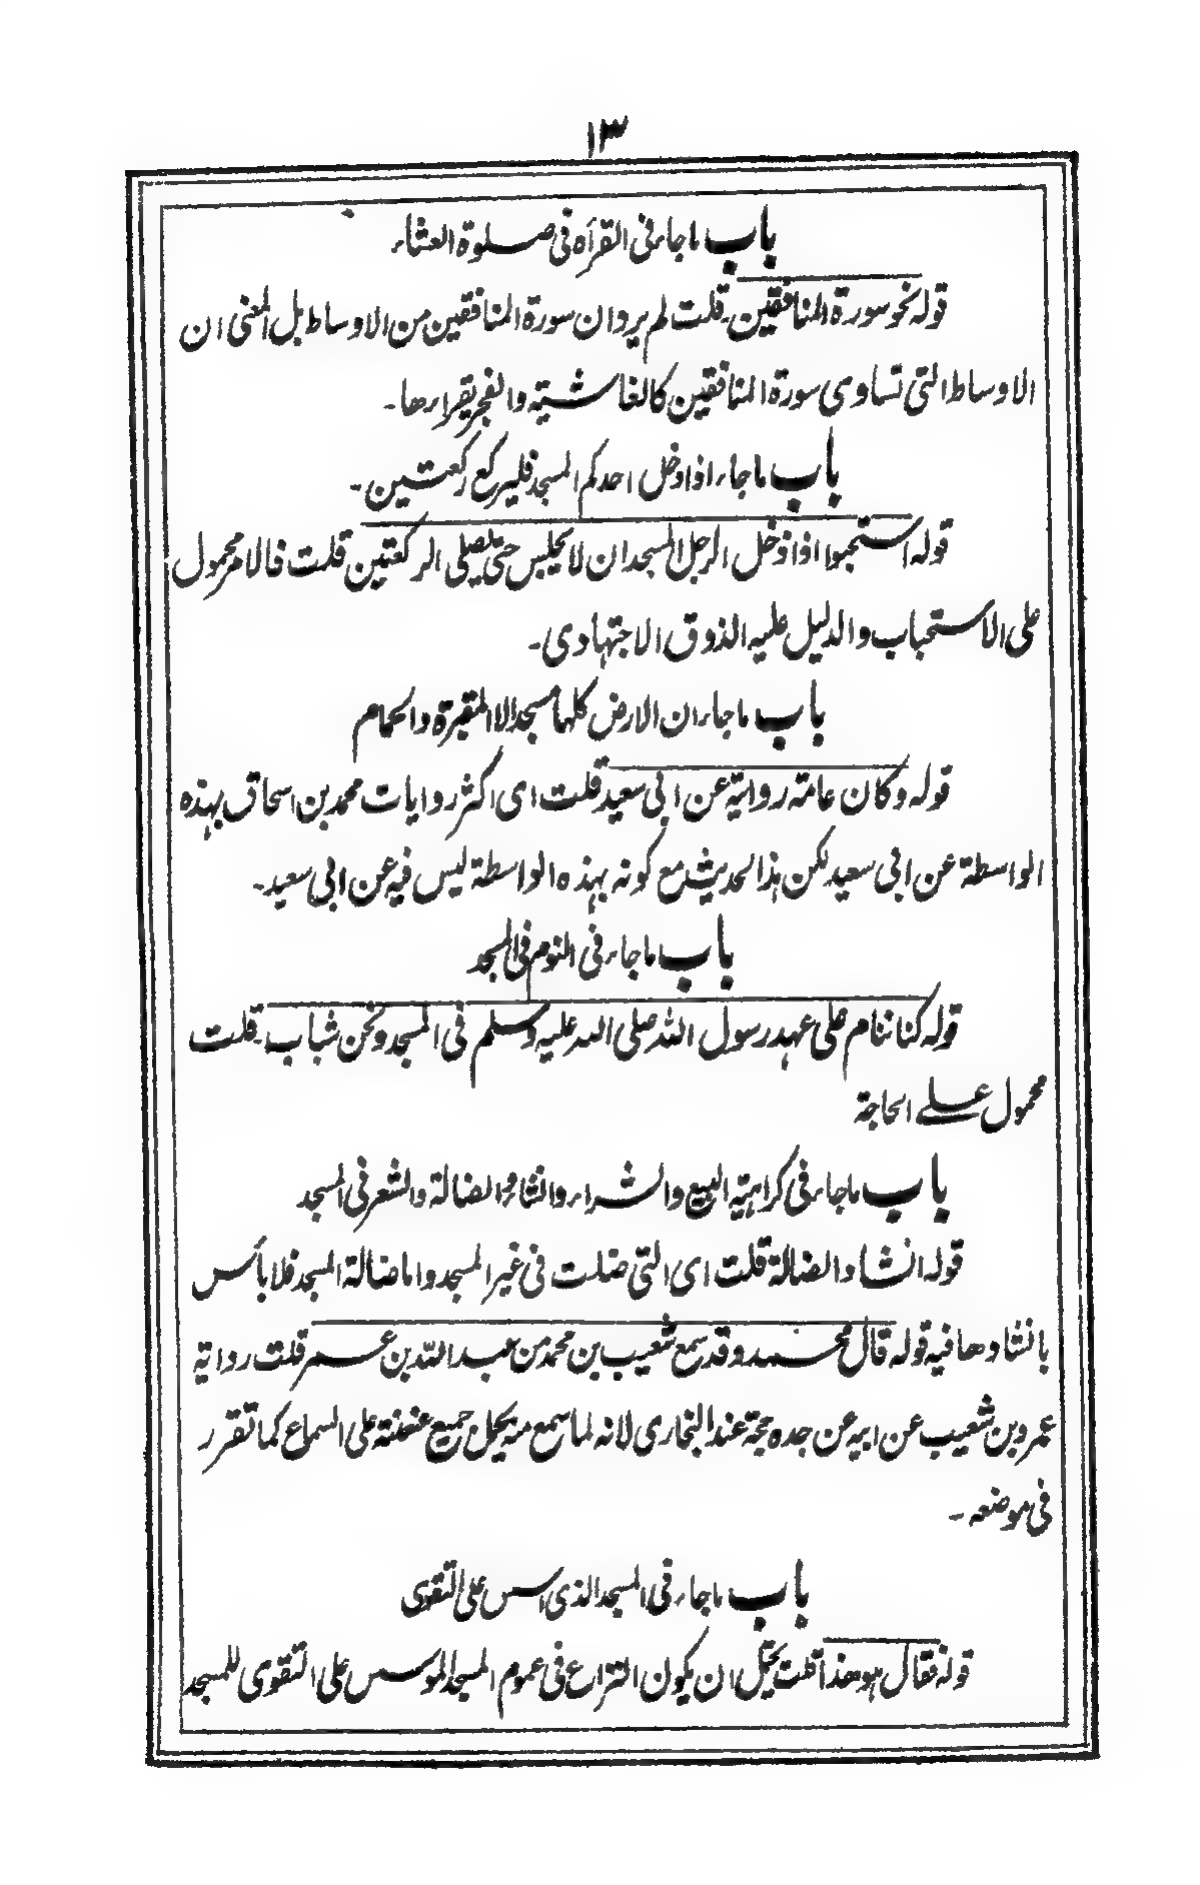 ١٣
باب ماجاء فی القرأة فی صلوة العشاء
قولہ نحو سورة المنافقین۔ قلت لم یرد ان سورة المنافقین من الاوساط بل المعنی ان
الاوساط التی تساوی سورة المنافقین کالغاشیتہ والفجر یقرأ رھا۔
باب ماجاء اذا دخل احدکم المسجد فلیرکع رکعتین۔
قولہ استحبوا اذا دخل الرجل المسجد ان لا یجلس حتی یصلی الرکعتین قلت فالامر محمول
علی الاستحباب والدلیل علیہ الذوق الاجتہادی۔
باب ماجاء ان الارض کلہا مسجد الا المقبرة والحمام
قولہ وکان عامتہ روایتہ عن ابی سعید قلت ای اکثر روایات محمد بن اسحاق بہذہ
الواسطة عن ابی سعید لکن ہذا الحدیث مع کونہ بہذہ الواسطة لیس فیہ عن ابی سعید۔
باب ماجاء فی النوم فی المسجد
قولہ کنا ننام علی عہد رسول اللہ صلی اللہ علیہ وسلم فی المسجد ونحن شباب۔ قلت
محمول علے الحاجة
باب ماجاء فی کراہیتہ البیع والشراء وانشاد الضالة والشعر فی المسجد
قولہ انشاد الضالة قلت ای التی ضلت فی غیر المسجد واما ضالة المسجد فلا بأس
بانشادھا فیہ قولہ قال محمد وقد سمع شعیب بن محمد من عبد اللہ بن عمر قلت روایتہ
عمرو بن شعیب عن ابیہ عن جدہ حجة عند البخاری لانہ لما سمع منہ یحمل جمیع عنعنتہ علی السماع کما تقرر
فی موضعہ۔
باب ماجاء فی المسجد الذی اسس علی التقوی
قولہ فقال ہو ھذا قلت یحتمل ان یکون النزاع فی عموم المسجد الموسس علی التقوی للمسجد